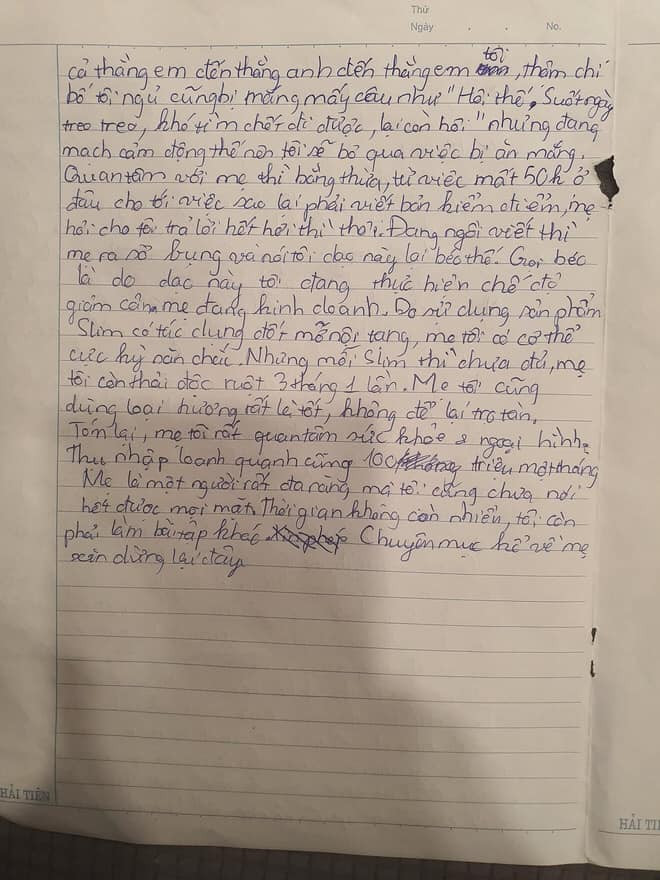 Thứ
Ngày . . No.
tôi
cả thằng em đến thằng anh đến thằng em, thậm chí
bố tôi ngủ cũng bị mắng mấy câu như "Hôi thế, Suốt ngày
treo treo, khó tìm chốt đi được, lại còn hôi" nhưng đang
mạch cảm động thế nên tôi sẽ bỏ qua việc bị ăn mắng.
Quan tâm với mẹ thì bằng thừa, từ việc mất 50k ở
đâu cho tới việc sao lại phải viết bản kiểm điểm, mẹ
hỏi cho tôi trả lời hết hơi thì thôi. Đang ngồi viết thì
mẹ ra sờ bụng và nói tôi dạo này lại béo thế. Gọi béo
là do dạo này tôi đang thực hiện chế độ
giảm cân mẹ đang kinh doanh. Do sử dụng sản phẩm
Slim có tác dụng đốt mỡ nội tạng, mẹ tôi có cơ thể
cực kỳ săn chắc. Nhưng mỗi Slim thì chưa đủ, mẹ
tôi còn thải độc ruột 3 tháng 1 lần. Mẹ tôi cũng
dùng loại hương rất là tốt, không để lại tro tàn.
Tóm lại, mẹ tôi rất quan tâm sức khỏe & ngoại hình.
Thu nhập loanh quanh cũng 100 triệu một tháng
Mẹ là một người rất đa năng mà tôi cũng chưa nói
hết được mọi mặt. Thời gian không còn nhiều, tôi còn
phải làm bài tập khác. Chuyên mục kể về mẹ
xin dừng lại đây
HẢI TIẾN
HẢI TIẾ